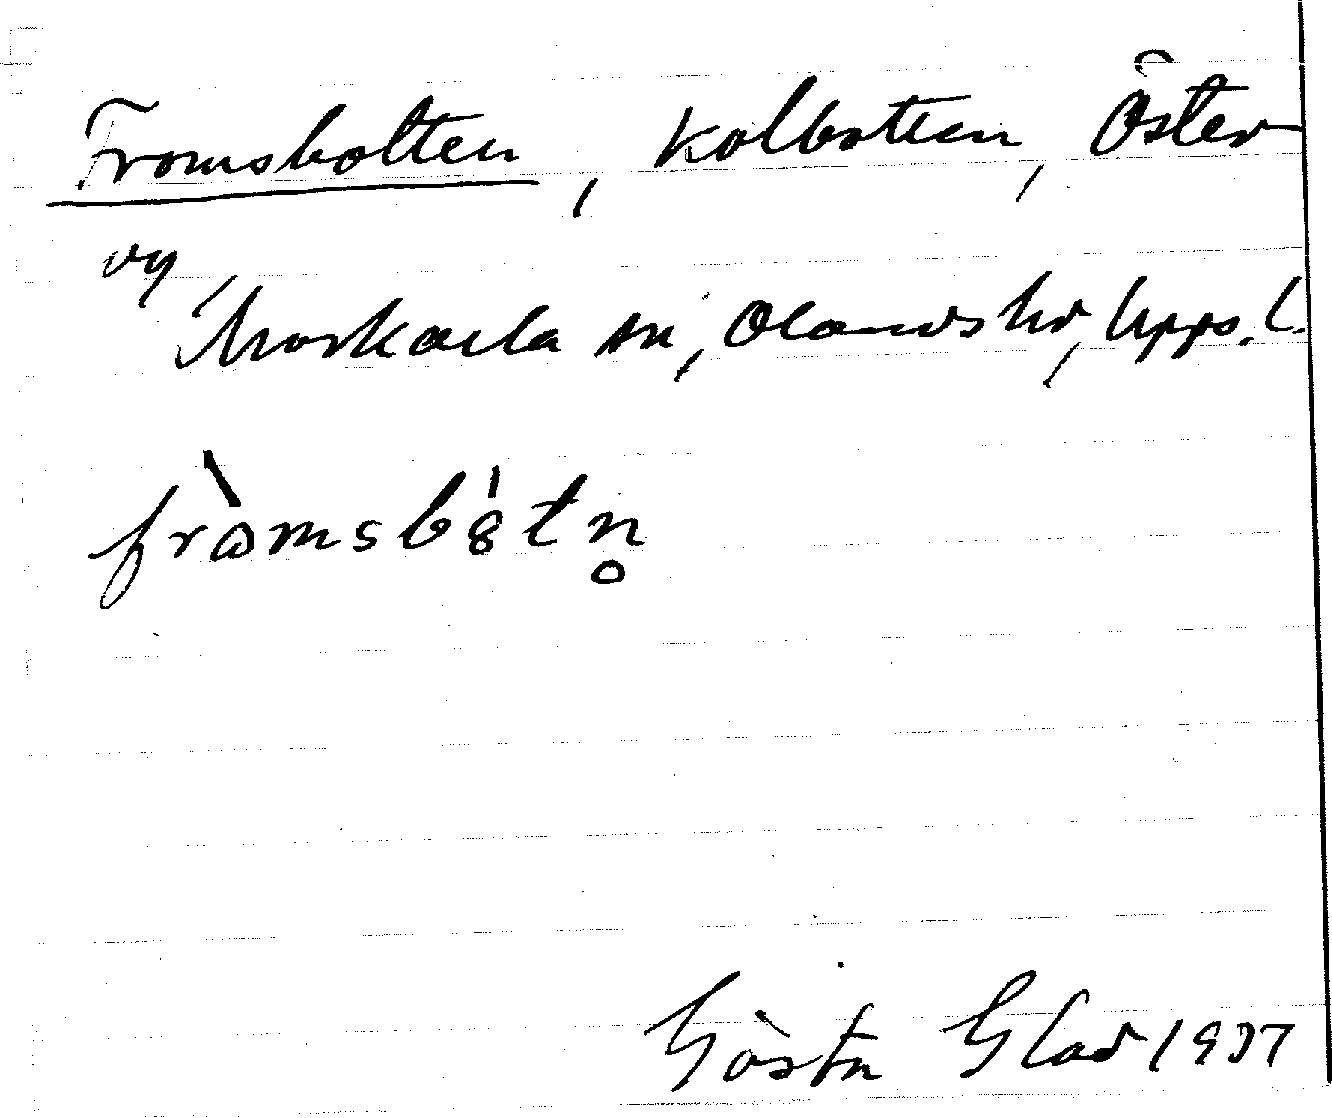 Fromsbotten, kolbotten, Öster
vy,
Morkarla sn, Olands hd, Upps. l.
fròmsbȣ́tn̥
Gösta Glad 1937